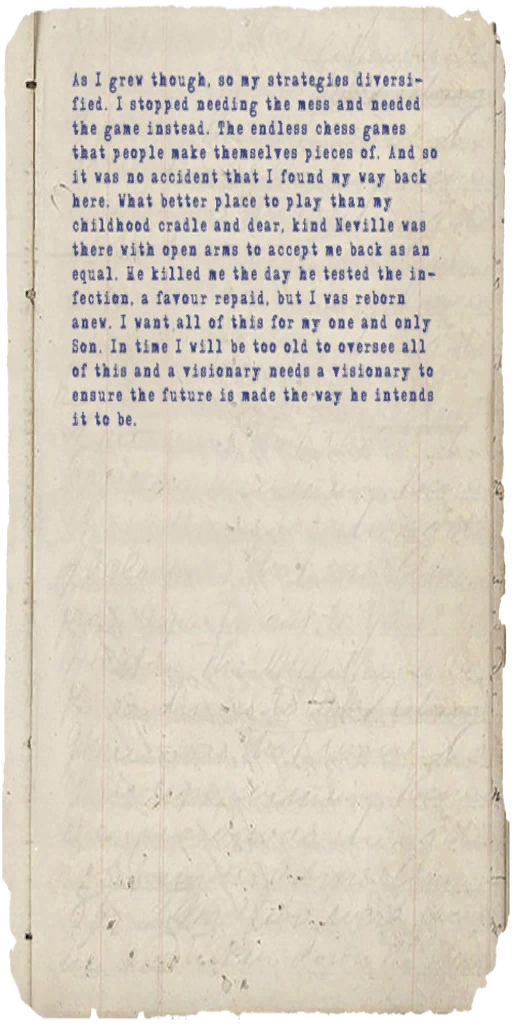 As I grew though, so my strategies diversi-
fied. I stopped needing the mess and needed
the game instead. The endless chess games
that people make themselves pieces of. And so
it was no accident that I found my way back
here. What better place to play than my
childhood cradle and dear, kind Neville was
there with open arms to accept me back as an
equal. He killed me the day he tested the in-
fection, a favour repaid, but I was reborn
anew. I want all of this for my one and only
Son. In time I will be too old to oversee all
of this and a visionary needs a visionary to
ensure the future is made the way he intends
it to be.